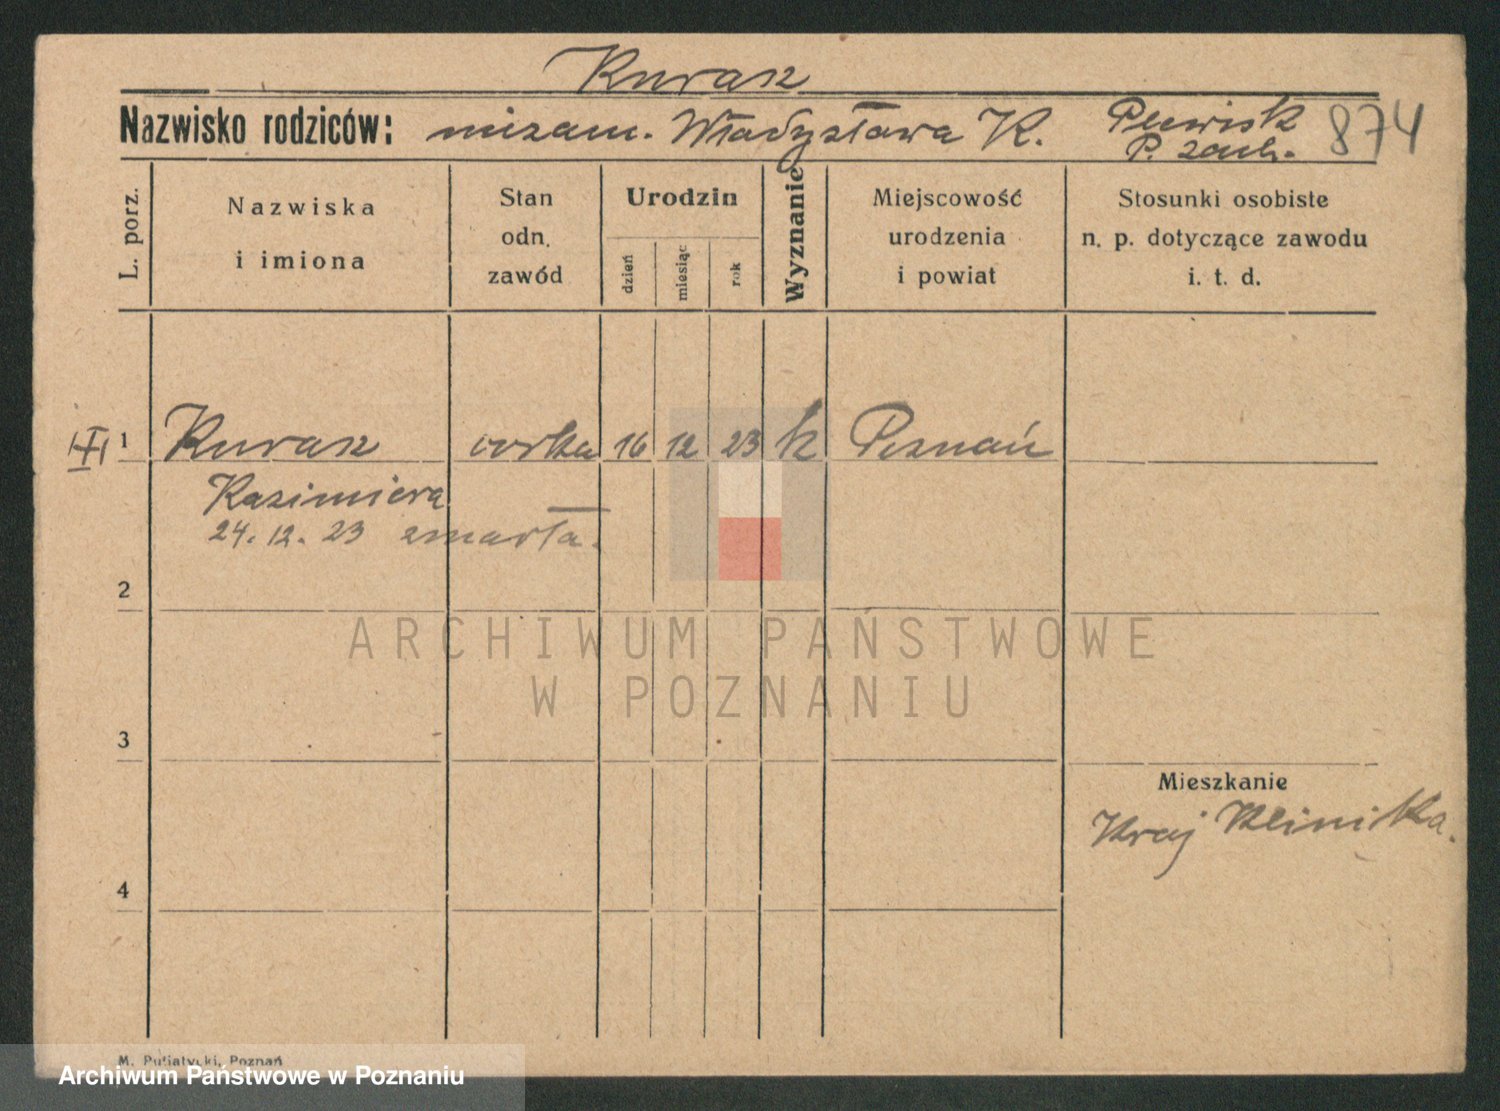 Kurasz
Nazwisko rodziców: niezam. Władysława K. Plewisk 874
P. zach.
L. porz.
Nazwiska
i imiona
Stan
odn.
zawód
Urodzin
dzień
miesiąc
rok
Wyznanie
Miejscowość
urodzenia
i powiat
Stosunki osobiste
n. p. dotyczące zawodu
i. t. d.
1 Kurasz córka 16 12 23 k Poznań
Kazimiera
24. 12. 23 zmarła.
2
ARCHIWUM PAŃSTWOWE
W POZNANIU
3
Mieszkanie
Kraj Klinika.
4
M. Putiatycki, Poznań
Archiwum Państwowe w Poznaniu